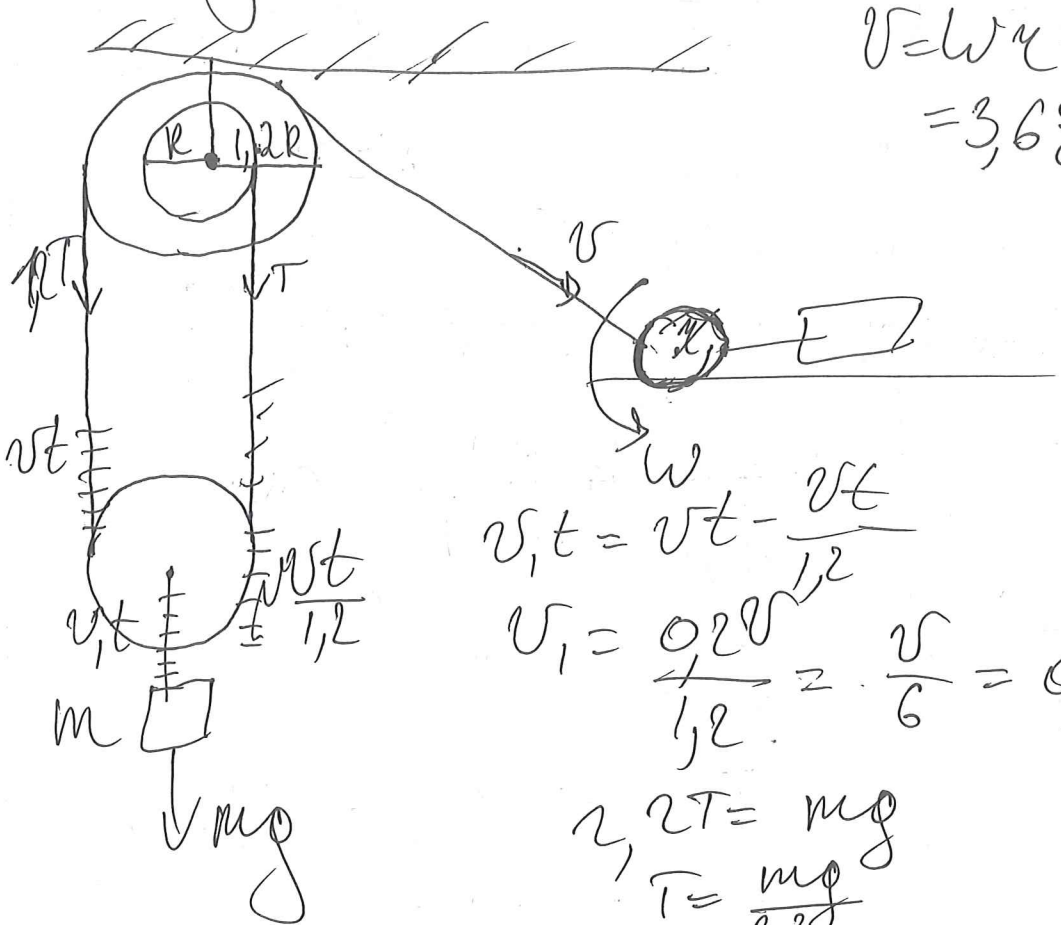 V = ωr
= 3,6
R 1,2R
1,2T
T
v
r
ω
vt
vt/1,2
v₁t
m
mg
v₁t = vt - vt/1,2
v₁ = 0,2v/1,2 = v/6 =
2,2T = mg
T = mg/2,2